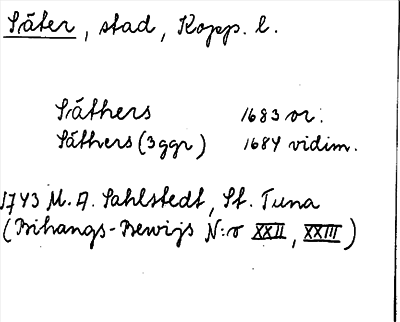 Säter, stad, Kopp. l.
Säthers 1683 or.
Säthers (3 ggr) 1684 vidim.
1743 M. A. Sahlstedt, St. Tuna
(Bihangs-Bewijs N:o XXII, XXIII)